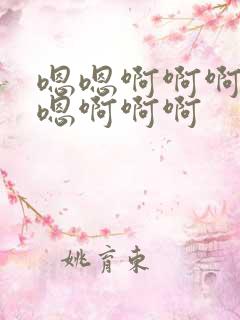 嗯嗯啊啊啊
嗯啊啊啊
姚育东